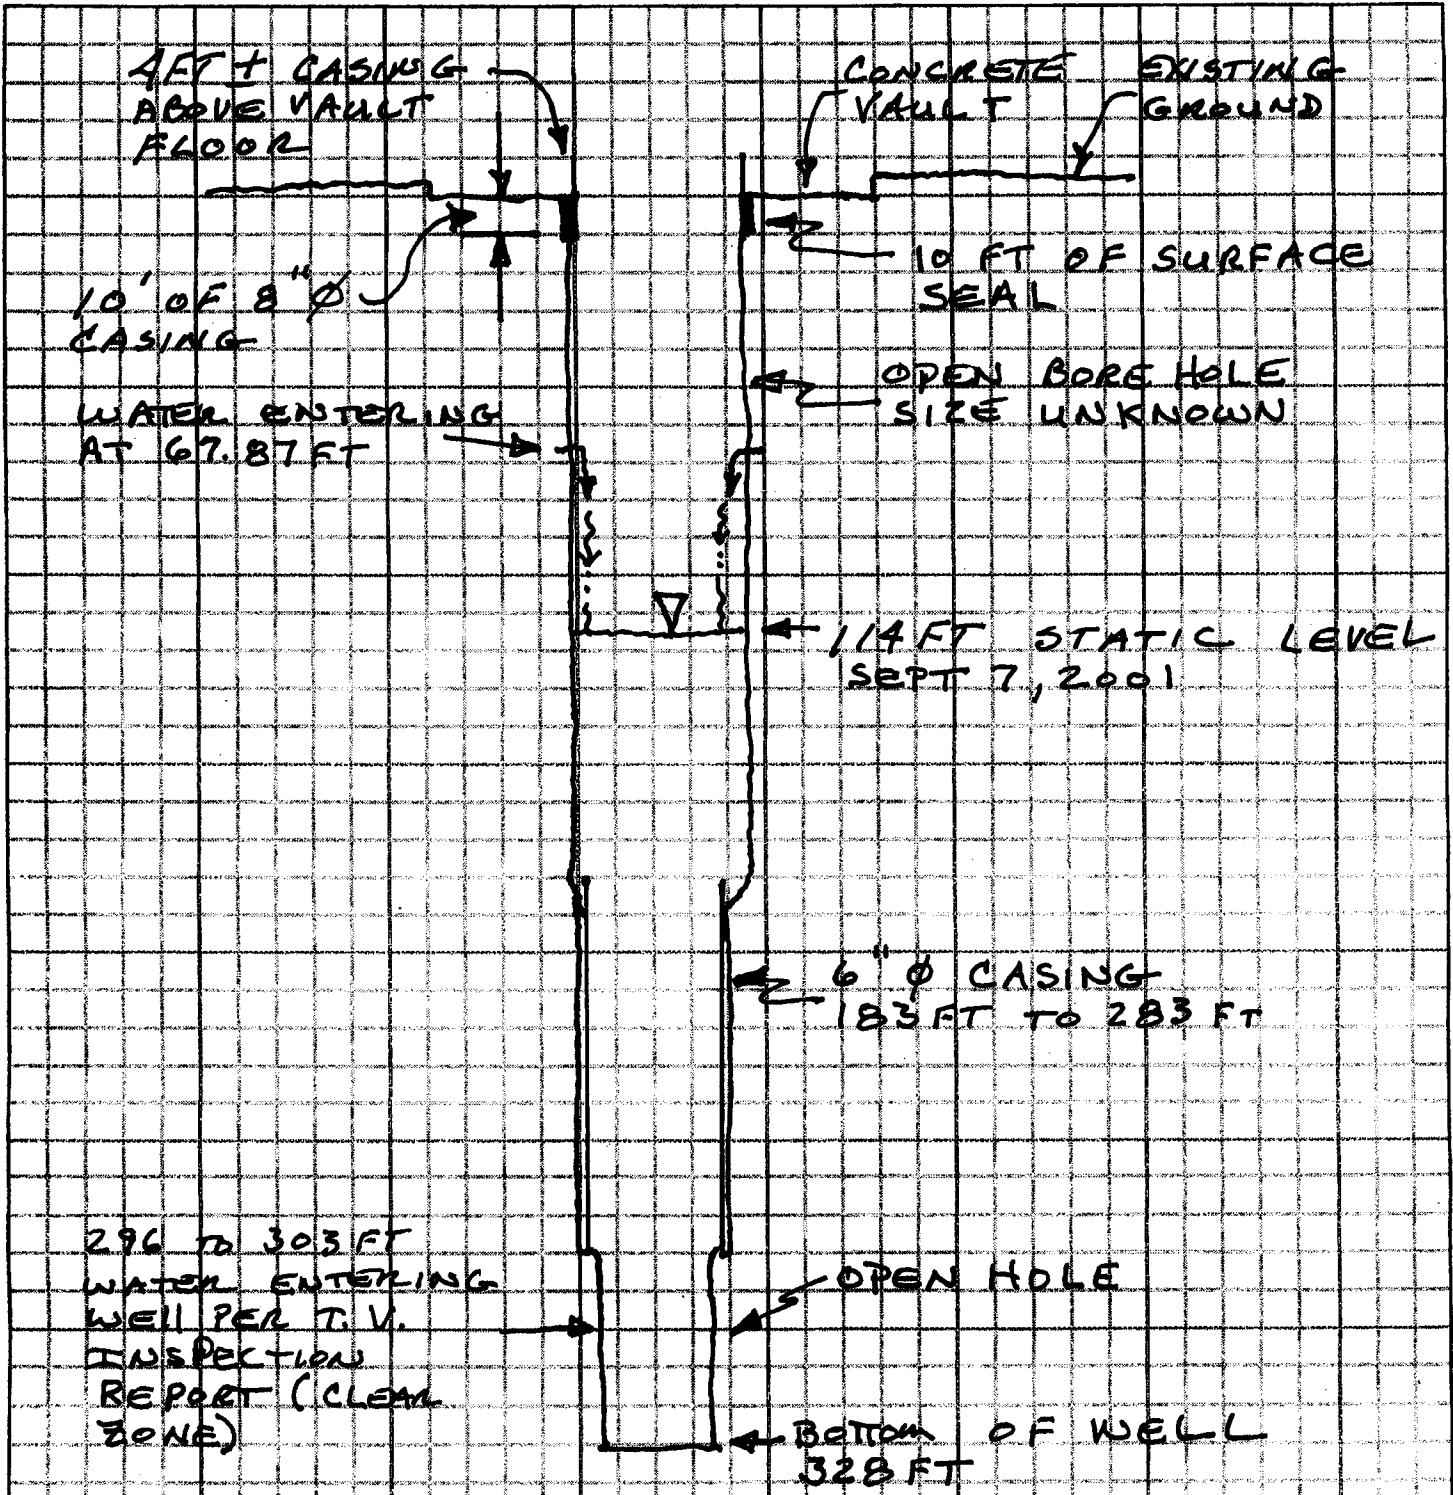 4FT ± CASING
ABOVE VAULT
FLOOR
CONCRETE
VAULT
EXISTING
GROUND
10' OF 8"Ø
CASING
10 FT OF SURFACE
SEAL
OPEN BORE HOLE
SIZE UNKNOWN
WATER ENTERING
AT 67.87 FT
114 FT STATIC LEVEL
SEPT 7, 2001
6"Ø CASING
183 FT TO 283 FT
296 TO 303 FT
WATER ENTERING
WELL PER T.V.
INSPECTION
REPORT (CLEAR
ZONE)
OPEN HOLE
BOTTOM OF WELL
328 FT